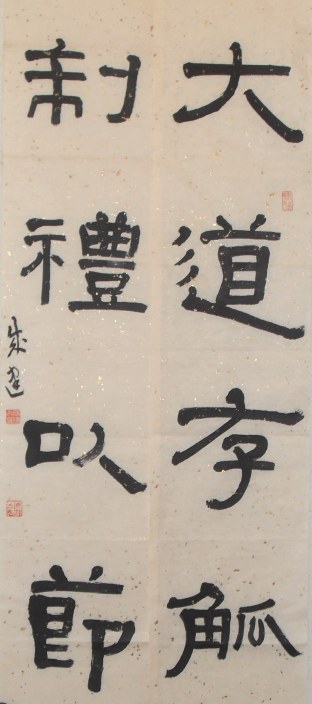 大道存觚
制禮以節